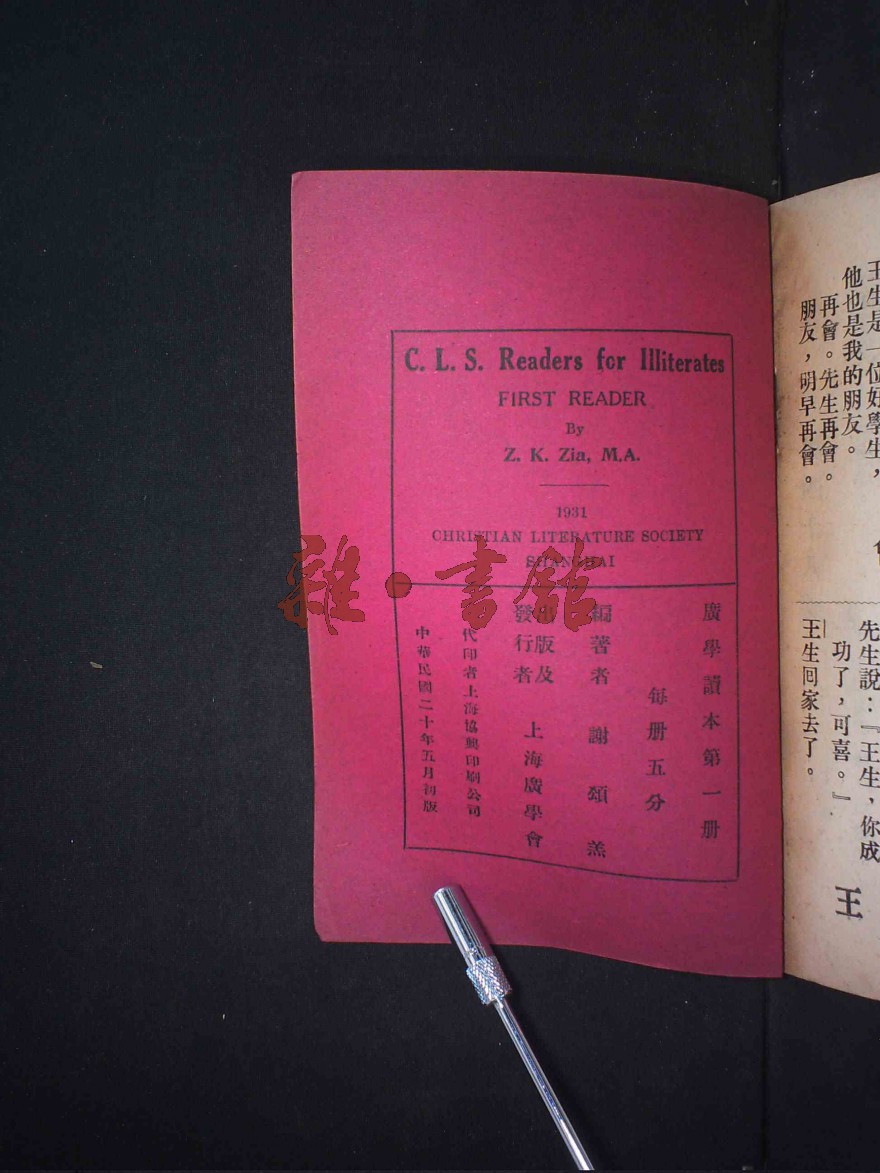 C. L. S. Readers for Illiterates
FIRST READER
By
Z. K. Zia, M.A.
1931
CHRISTIAN LITERATURE SOCIETY
SHANGHAI
廣學讀本第一册
每册五分
編著者 謝頌羔
出版及發行者 上海廣學會
代印者上海協興印刷公司
中華民國二十年五月初版
雜·書館
王生是一位好學生，
他也是我的朋友。
再會。先生再會。
朋友，明早再會。
先生說：『王生，你成
功了，可喜。』
王生回家去了。
王